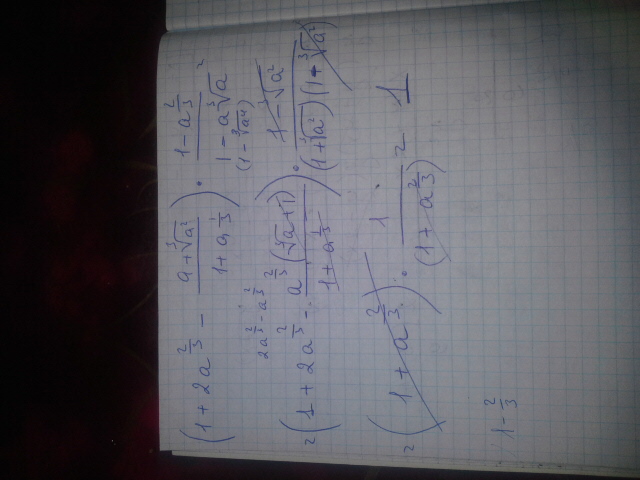 (1 + 2a^{2/3} - \frac{a + \sqrt[3]{a^2}}{1 + a^{1/3}}) \cdot \frac{1 - a^{2/3}}{1 - a\sqrt[3]{a}} =
(1 - \sqrt[3]{a^4})
2a^{2/3} - a^{2/3}
= (1 + 2a^{2/3} - \frac{a^{2/3}(\sqrt[3]{a} + 1)}{1 + a^{1/3}}) \cdot \frac{1 - \sqrt[3]{a^2}}{(1 + \sqrt[3]{a^2})(1 - \sqrt[3]{a^2})}
= (1 + a^{2/3}) \cdot \frac{1}{(1 + a^{2/3})} = 1
1 - \frac{2}{3}